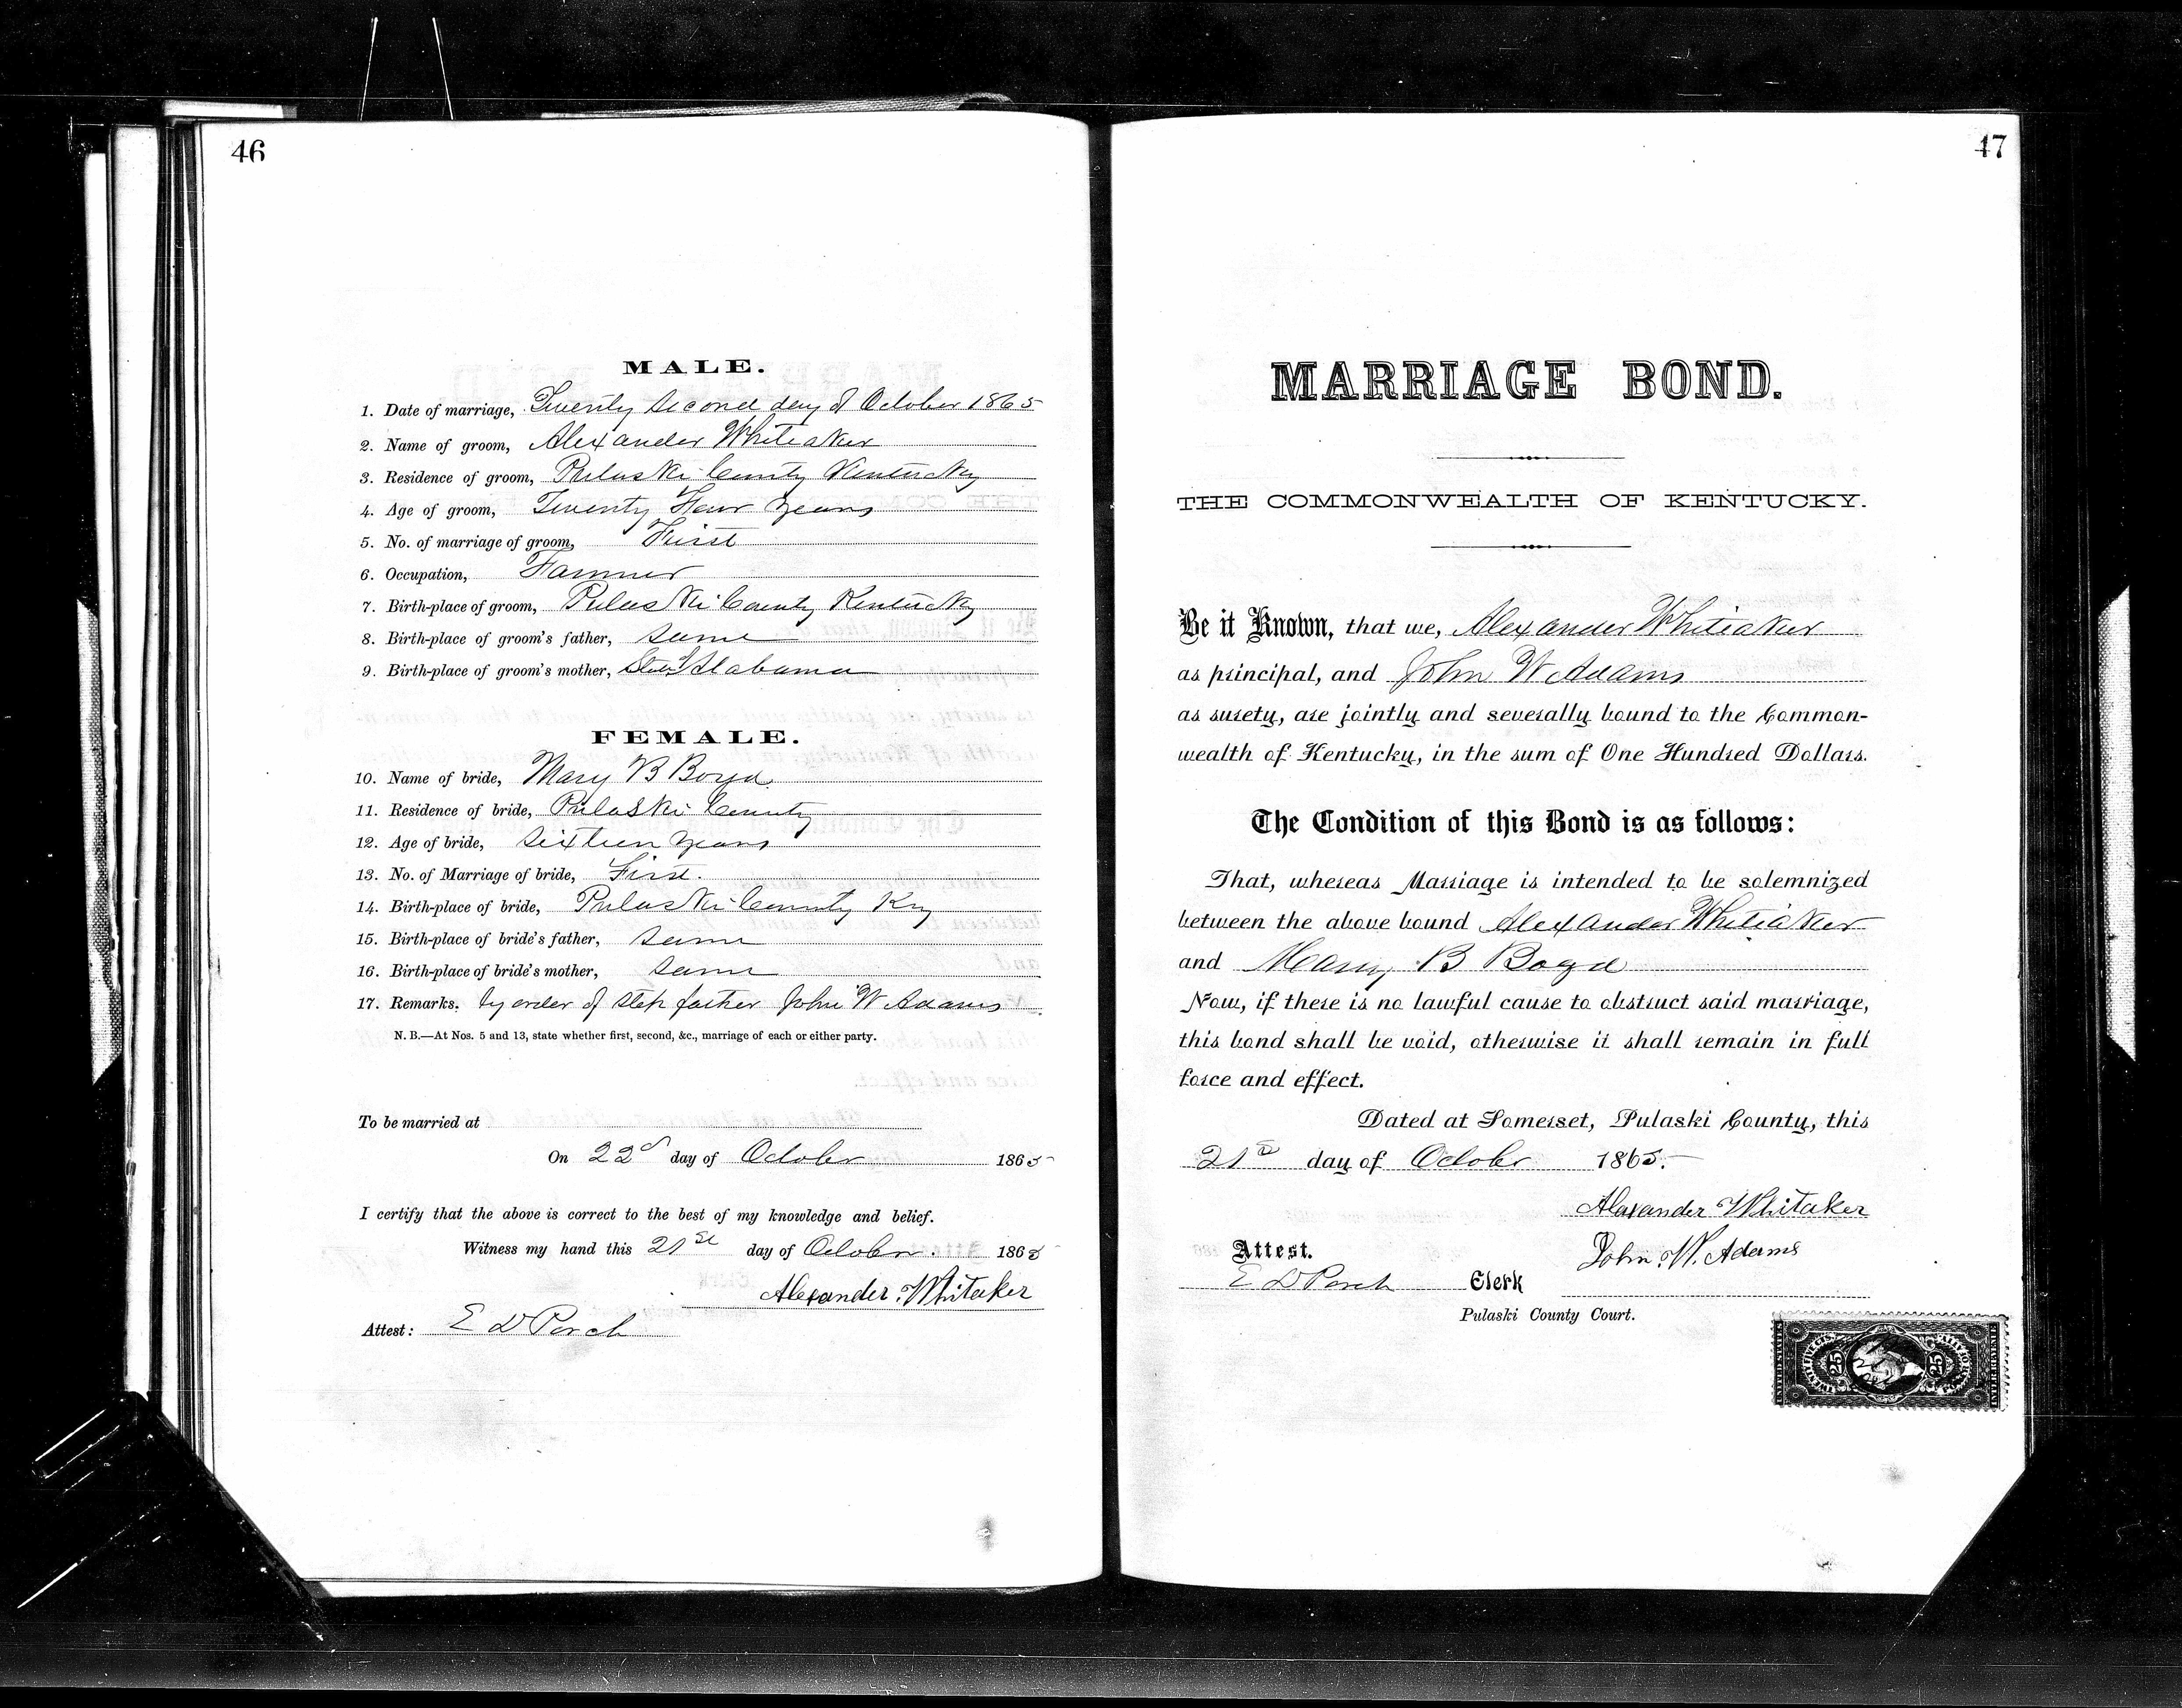 46
MALE.
1. Date of marriage, Twenty Second day of October 1865
2. Name of groom, Alexander Whiteaker
3. Residence of groom, Pulaski County Kentucky
4. Age of groom, Twenty Four years
5. No. of marriage of groom, First
6. Occupation, Farmer
7. Birth-place of groom, Pulaski County Kentucky
8. Birth-place of groom's father, same
9. Birth-place of groom's mother, State of Alabama
FEMALE.
10. Name of bride, Mary B Boyd
11. Residence of bride, Pulaski County
12. Age of bride, Sixteen years
13. No. of Marriage of bride, First.
14. Birth-place of bride, Pulaski County Ky
15. Birth-place of bride's father, same
16. Birth-place of bride's mother, same
17. Remarks. by order of Step father John W Adams
N. B.—At Nos. 5 and 13, state whether first, second, &c., marriage of each or either party.
To be married at
On 22d day of October 1865
I certify that the above is correct to the best of my knowledge and belief.
Witness my hand this 21st day of October. 1865
Alexander Whitaker
Attest: E D Porch
47
MARRIAGE BOND.
THE COMMONWEALTH OF KENTUCKY.
Be it Known, that we, Alexander Whiteaker
as principal, and John W Adams
as surety, are jointly and severally bound to the Common-
wealth of Kentucky, in the sum of One Hundred Dollars.
The Condition of this Bond is as follows:
That, whereas Marriage is intended to be solemnized
between the above bound Alexander Whiteaker
and Mary B Boyd
Now, if there is no lawful cause to obstruct said marriage,
this bond shall be void, otherwise it shall remain in full
force and effect.
Dated at Somerset, Pulaski County, this
21st day of Octobr 1865.
Alexander Whitaker
Attest. John W. Adams
E D Porch Clerk
Pulaski County Court.
25 25